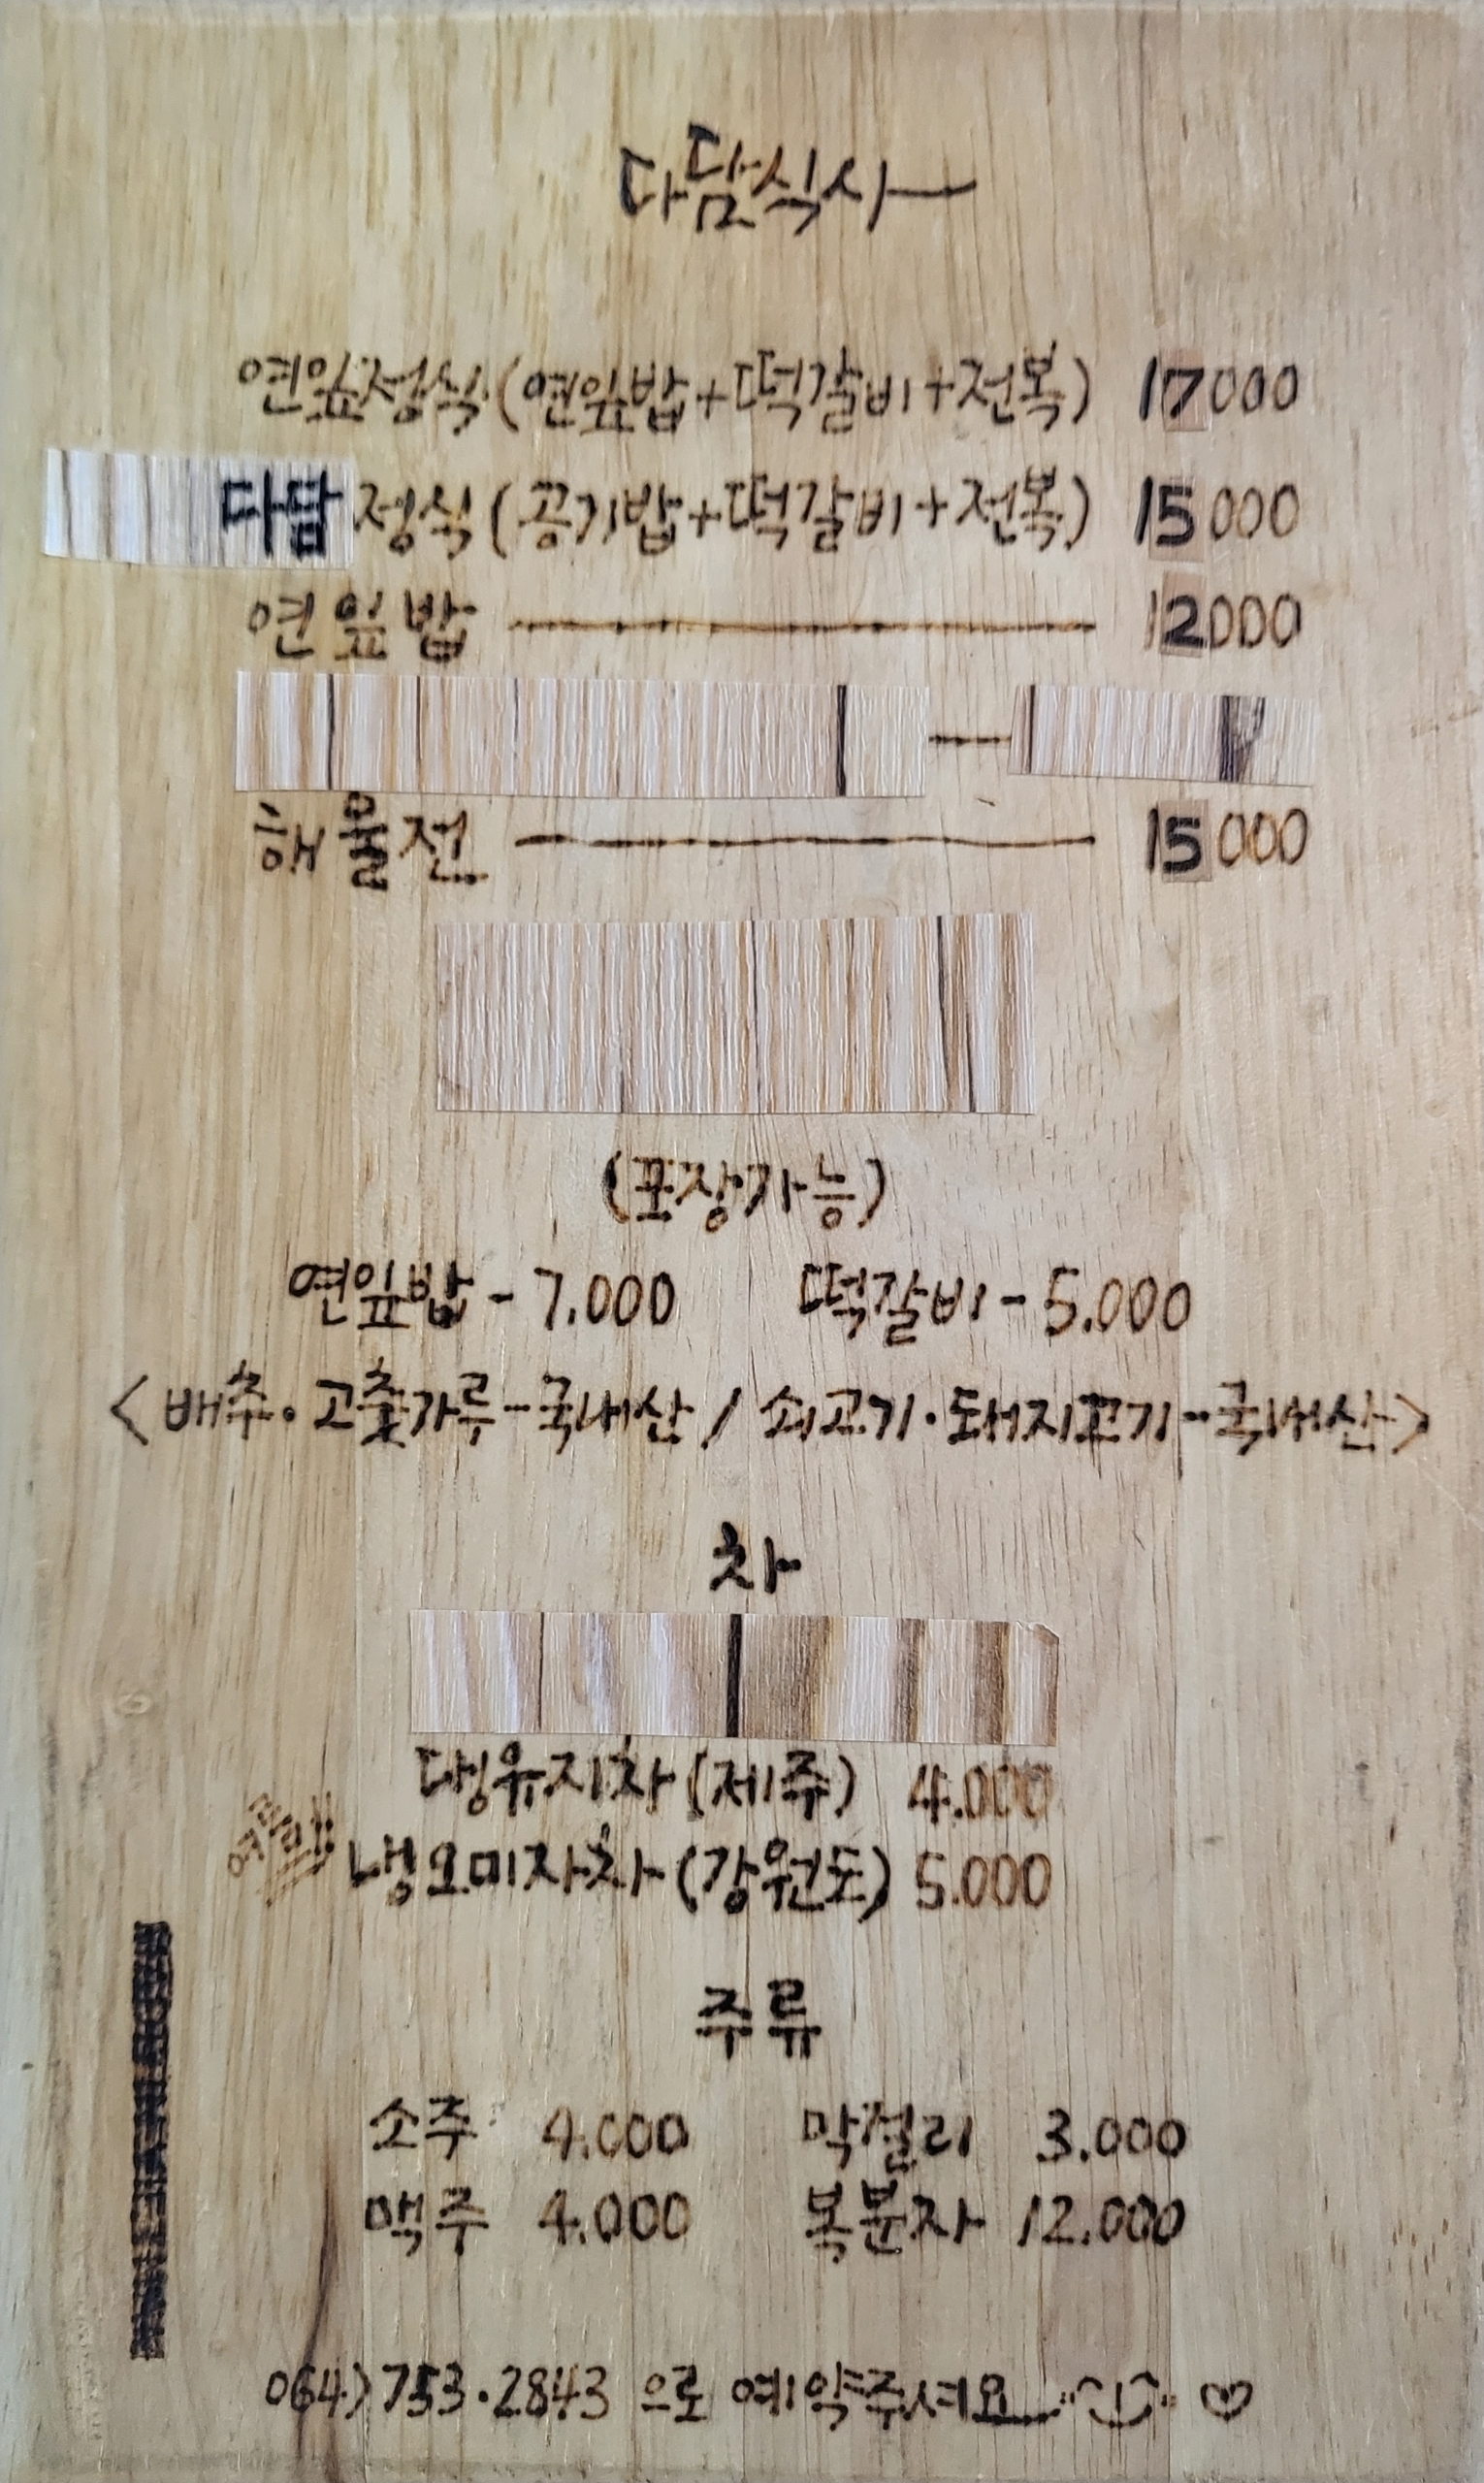 다담식사
연잎정식(연잎밥+떡갈비+전복) 17000
다담정식(공기밥+떡갈비+전복) 15000
연잎밥 12000
해물전 15000
(포장가능)
연잎밥-7.000 떡갈비-5.000
<배추·고춧가루-국내산/쇠고기·돼지고기-국내산>
차
댕유지차(제주) 4.000
냉오미자차(강원도) 5.000
주류
소주 4.000 막걸리 3.000
맥주 4.000 복분자 12.000
064)753.2843 으로 예약주셔요